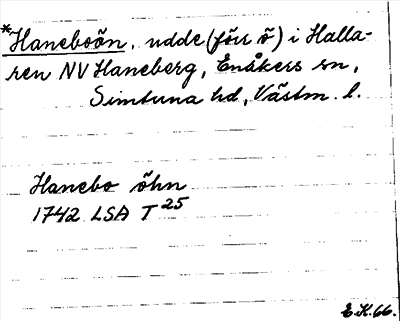 *Haneboön, udde (förr ö) i Halla-
ren NV Haneberg, Enåkers sn,
Simtuna hd, Västm. l.
Hanebo öhn
1742 LSA T25
E.K.66.